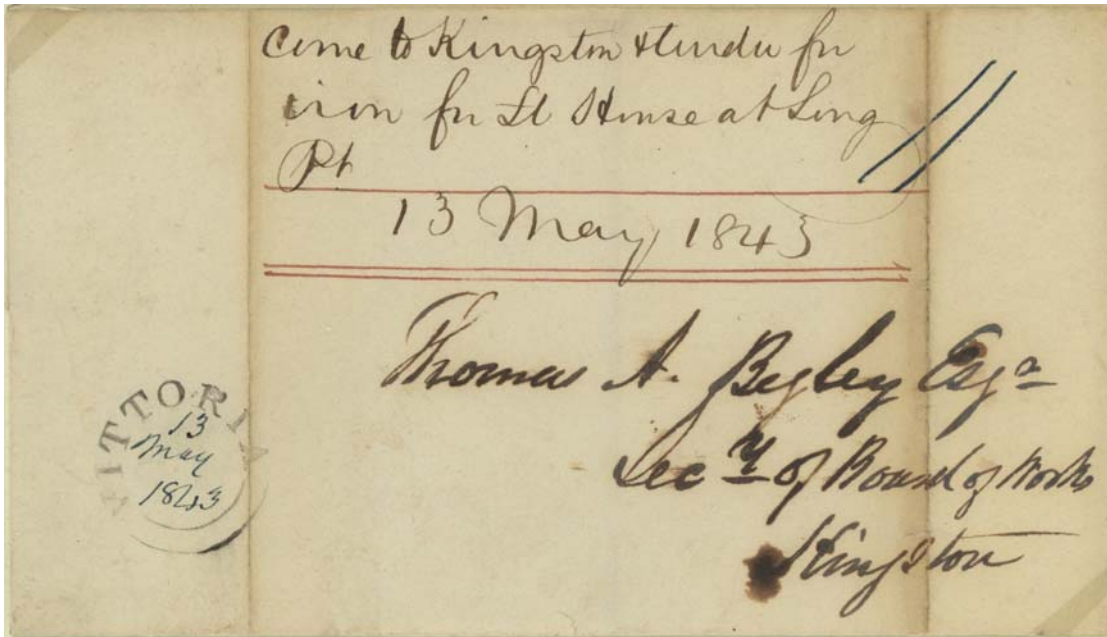 Come to Kingston & tender for
iron for Lt House at Long
Pt
13 May 1843
Thomas A. Begley Esqr
Secy of Board of Works
Kingston
VITTORIA
13
May
1843